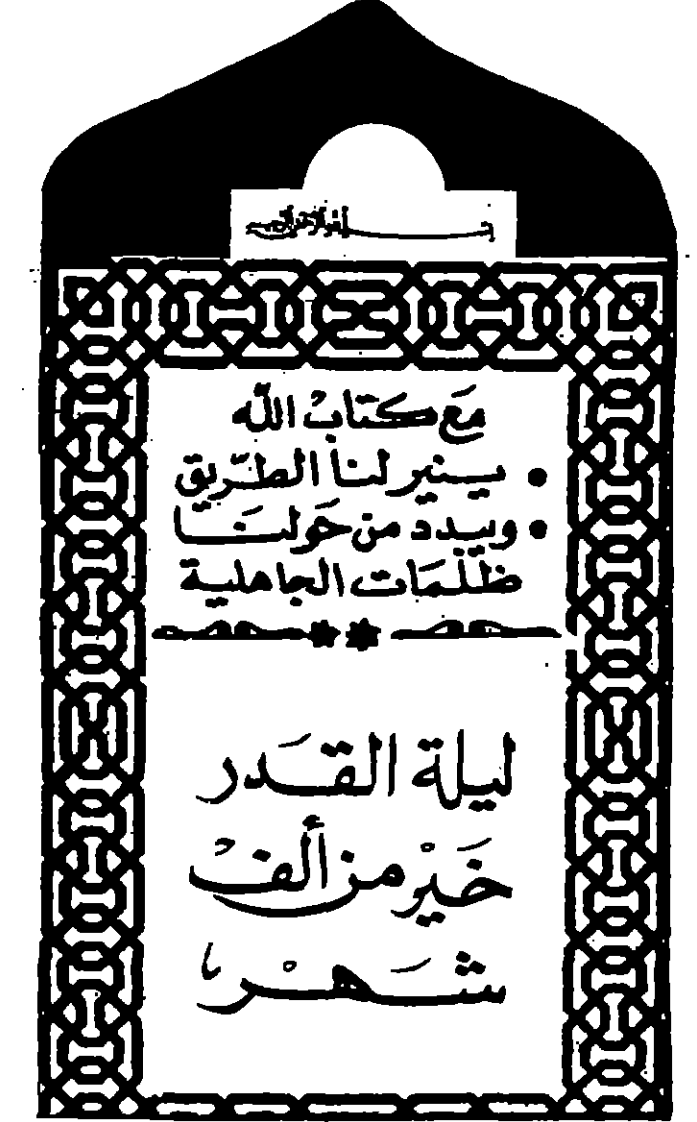 بسم الله الرحمن الرحيم
مَع كتابْ الله
• يسنير لنا الطّريق
• ويبدد من حَولنَا
ظلْمَات الجاهلية
ليلة القَدر
خَيْر من ألفْ
شَهْر